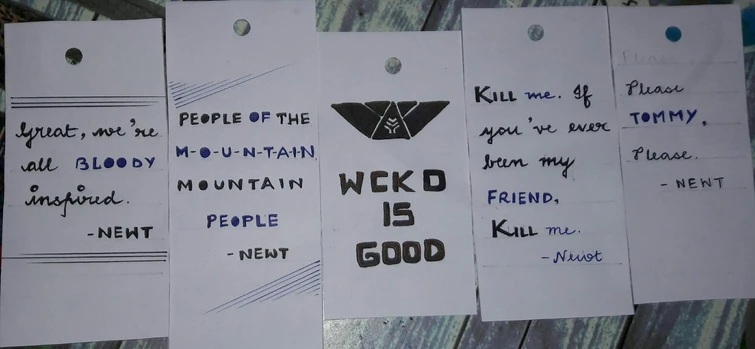 Great, we're
all BLOODY
inspired.
-NEWT
PEOPLE OF THE
M-O-U-N-T-A-I-N
MOUNTAIN
PEOPLE
-NEWT
WCKD
IS
GOOD
KILL me. If
you've ever
been my
FRIEND,
KILL me.
-Newt
Please
Please
TOMMY,
Please.
-NEWT